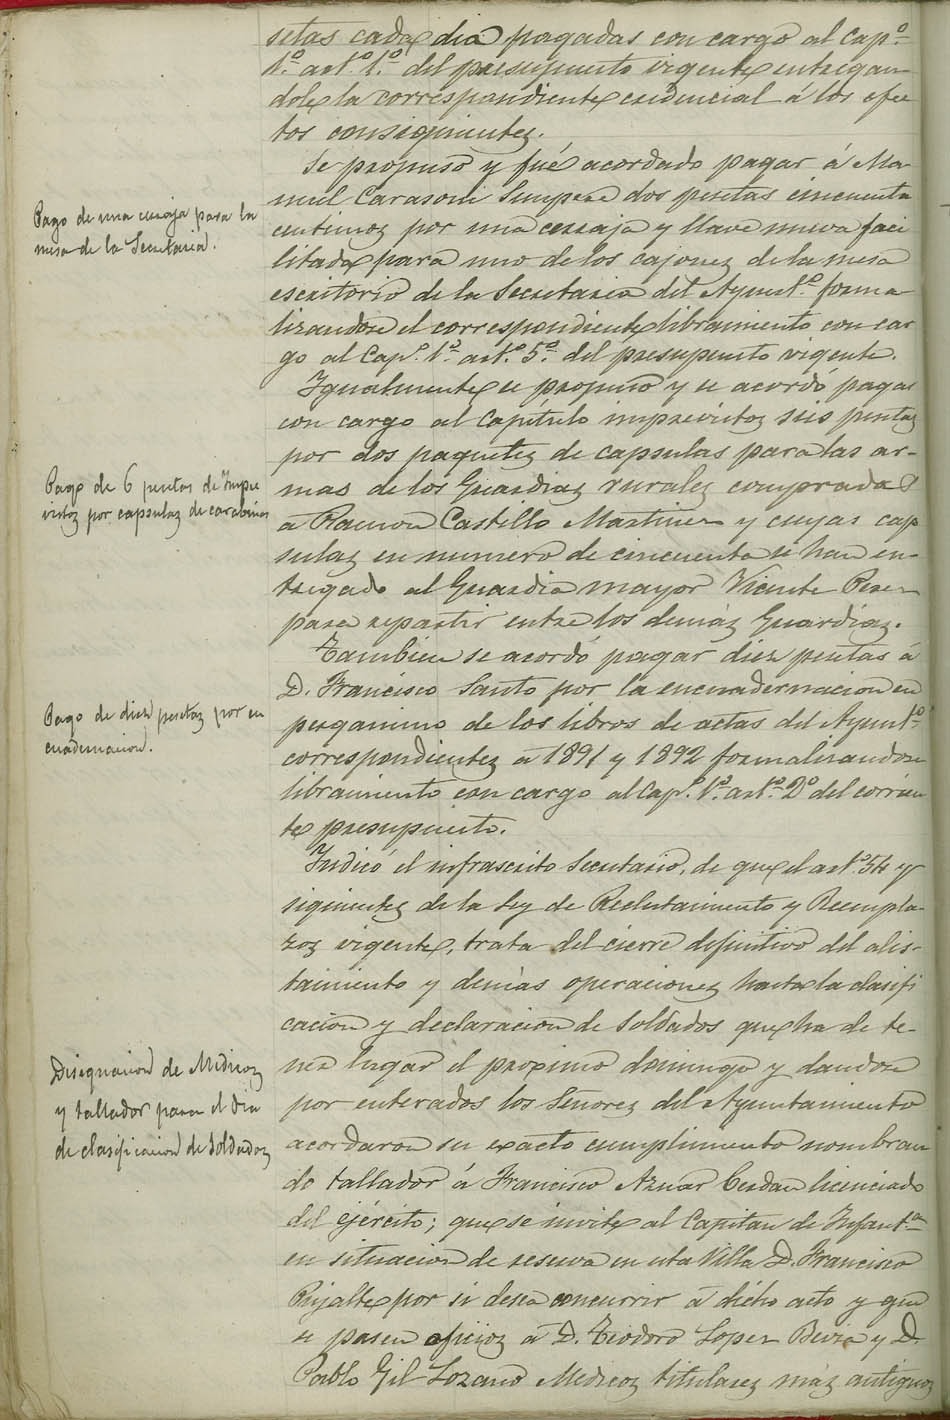 setas cada dia pagadas con cargo al Cap.º
1.º art.º 1.º del presupuesto vigente entregan-
dole la correspondiente credencial á los efec
tos consiguientes.
Se propuso y fué acordado pagar á Ma-
nuel Carasoni Sempere dos pesetas cincuenta
centimos por una cerraja y llave nueva faci
litada para uno de los cajones de la mesa
escritorio de la Secretaria del Ayunt.º forma-
lizandose el correspondiente libramiento con car
go al Cap.º 1.º art.º 5.º del presupuesto vigente.
Pago de una cerraja para la
mesa de la Secretaria.
Igualmente se propuso y se acordó pagar
con cargo al Capitulo imprevistos seis pesetas
por dos paquetes de capsulas para las ar-
mas de los Guardias rurales compradas
á Ramon Castelló Martinez y cuyas cap
sulas en numero de cincuenta se han en-
tregado al Guardia mayor Vicente
para repartir entre los demás Guardias.
Pago de 6 pesetas de Impre
vistos por capsulas de carabinas
Tambien se acordó pagar diez pesetas á
D. Francisco Santo por la encuadernacion en
pergamino de los libros de actas del Ayunt.º
correspondientes á 1891 y 1892 formalizandose
libramiento con cargo al Cap.º 1.º art.º 2.º del corrien
te presupuesto.
Pago de diez pesetas por en
cuadernacion.
Indicó el infrascrito Secretario, de que el art.º 54 y
siguientes de la Ley de Reclutamiento y Reempla-
zos vigente, trata del cierre definitivo del alis-
tamiento y demás operaciones hasta la clasifi
cacion y declaracion de Soldados que ha de te-
ner lugar el proximo domingo y dandose
por enterados los Señores del Ayuntamiento
acordaron su exacto cumplimiento nombran
do tallador á Francisco Aznar Cerdan licenciado
del ejército; que se invite al Capitan de Infant.ª
en situacion de reserva en esta Villa D. Francisco
Pujalte por si desea concurrir á dicho acto y que
se pasen oficios á D. Teodoro Lopez Bevia y D.
Pablo Gil Lozano Medicos titulares más antiguos
Designacion de Medicos
y tallador para el dia
de clasificacion de Soldados